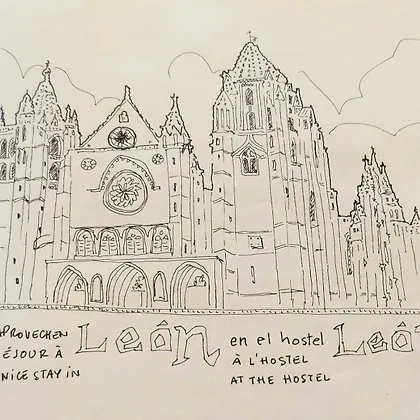 APROVECHEN
ÉJOUR À
NICE STAY IN
León
en el hostel
À L'HOSTEL
AT THE HOSTEL
Leó